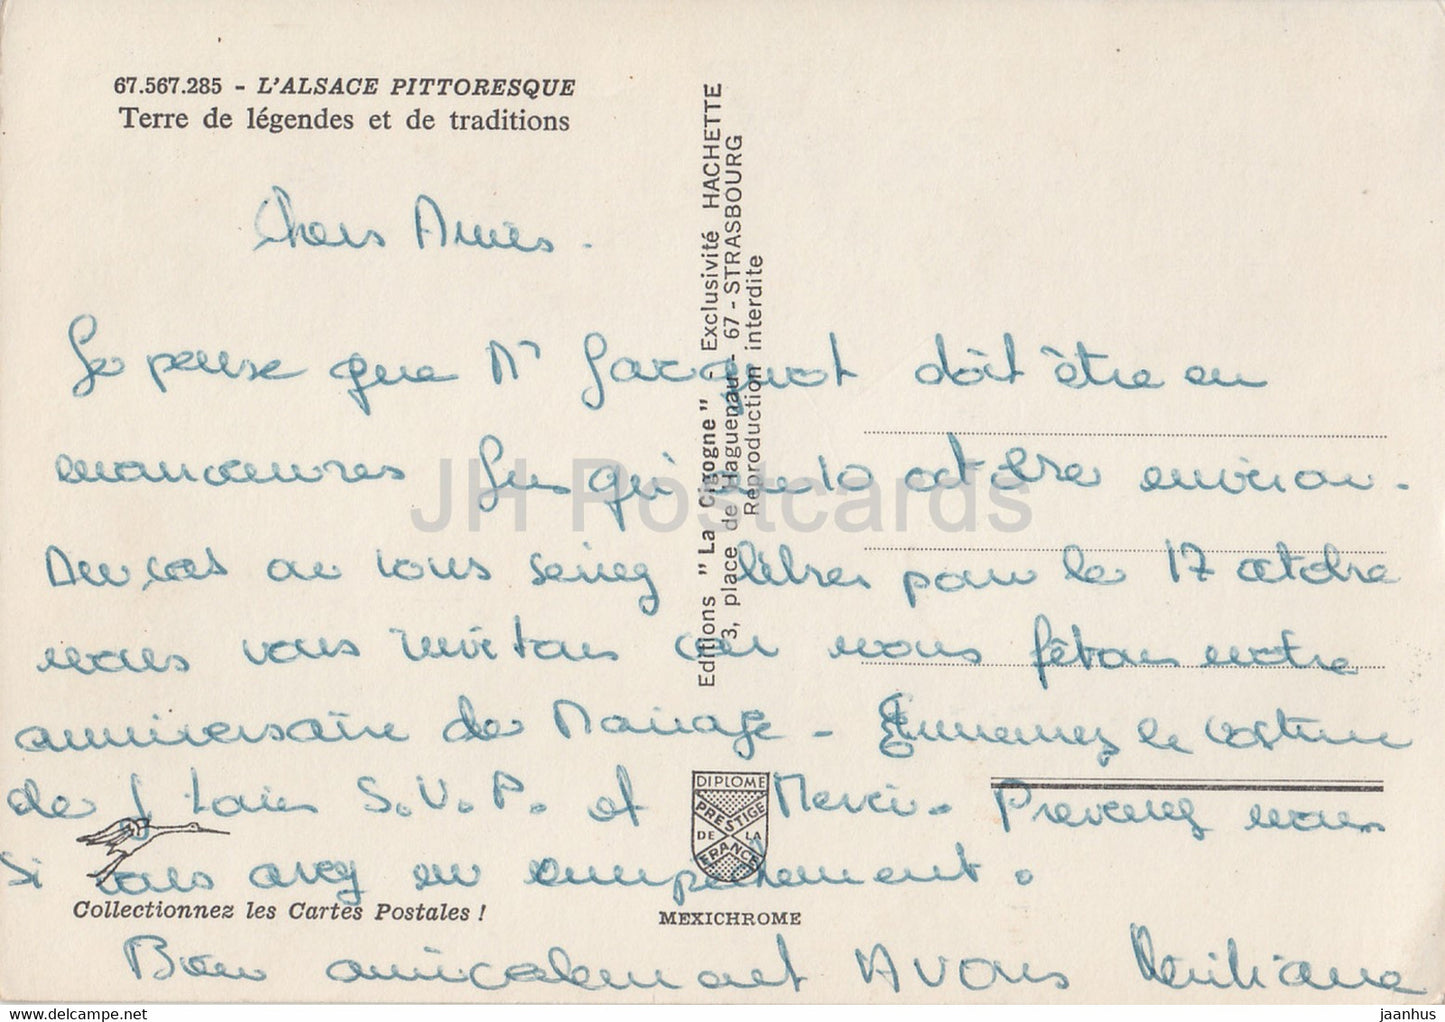 67.567.285 - L'ALSACE PITTORESQUE
Terre de légendes et de traditions
Chers Amis.
Je pense que Mr Jacquot doit être en
manœuvres Jusqu'au 10 octobre environ.
Au cas où vous seriez libres pour le 17 octobre
nous vous invitons car nous fêtons notre
anniversaire de Mariage - Emmenez le costume
de S.V.P. et Merci. Prevenez nous
Si vous avez un empêchement.
Bien amicalement A Vous
Collectionnez les Cartes Postales !
MEXICHROME
DIPLOME
PRESTIGE
DE LA
FRANCE
Editions "La Cigogne" - Exclusivité HACHETTE
3, place de Haguenau - 67 - STRASBOURG
Reproduction interdite
JH Postcards
jaanhus